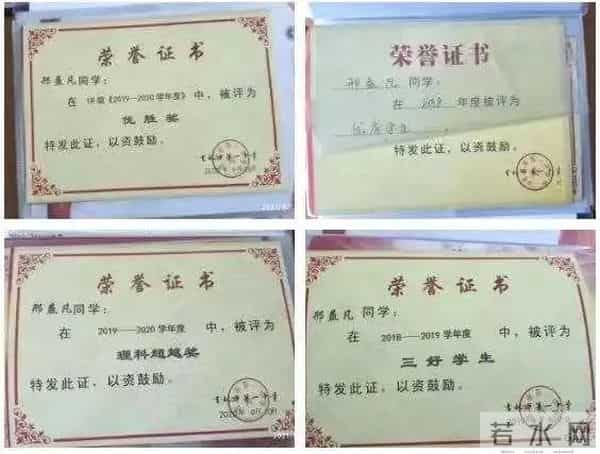 荣誉证书
邢益凡同学:
在 评定《2019—2020学年度》中, 被评为
优胜奖
特发此证, 以资鼓励。
荣誉证书
邢益凡 同学:
在 2019 年度被评为
优秀学生
特发此证, 以资鼓励。
荣誉证书
邢益凡同学:
在 2019——2020 学年度 中, 被评为
理科超越奖
特发此证, 以资鼓励。
吉林市第一中学
荣誉证书
邢益凡同学:
在 2018——2019 学年度 中, 被评为
三好学生
特发此证, 以资鼓励。
吉林市第一中学
若水网